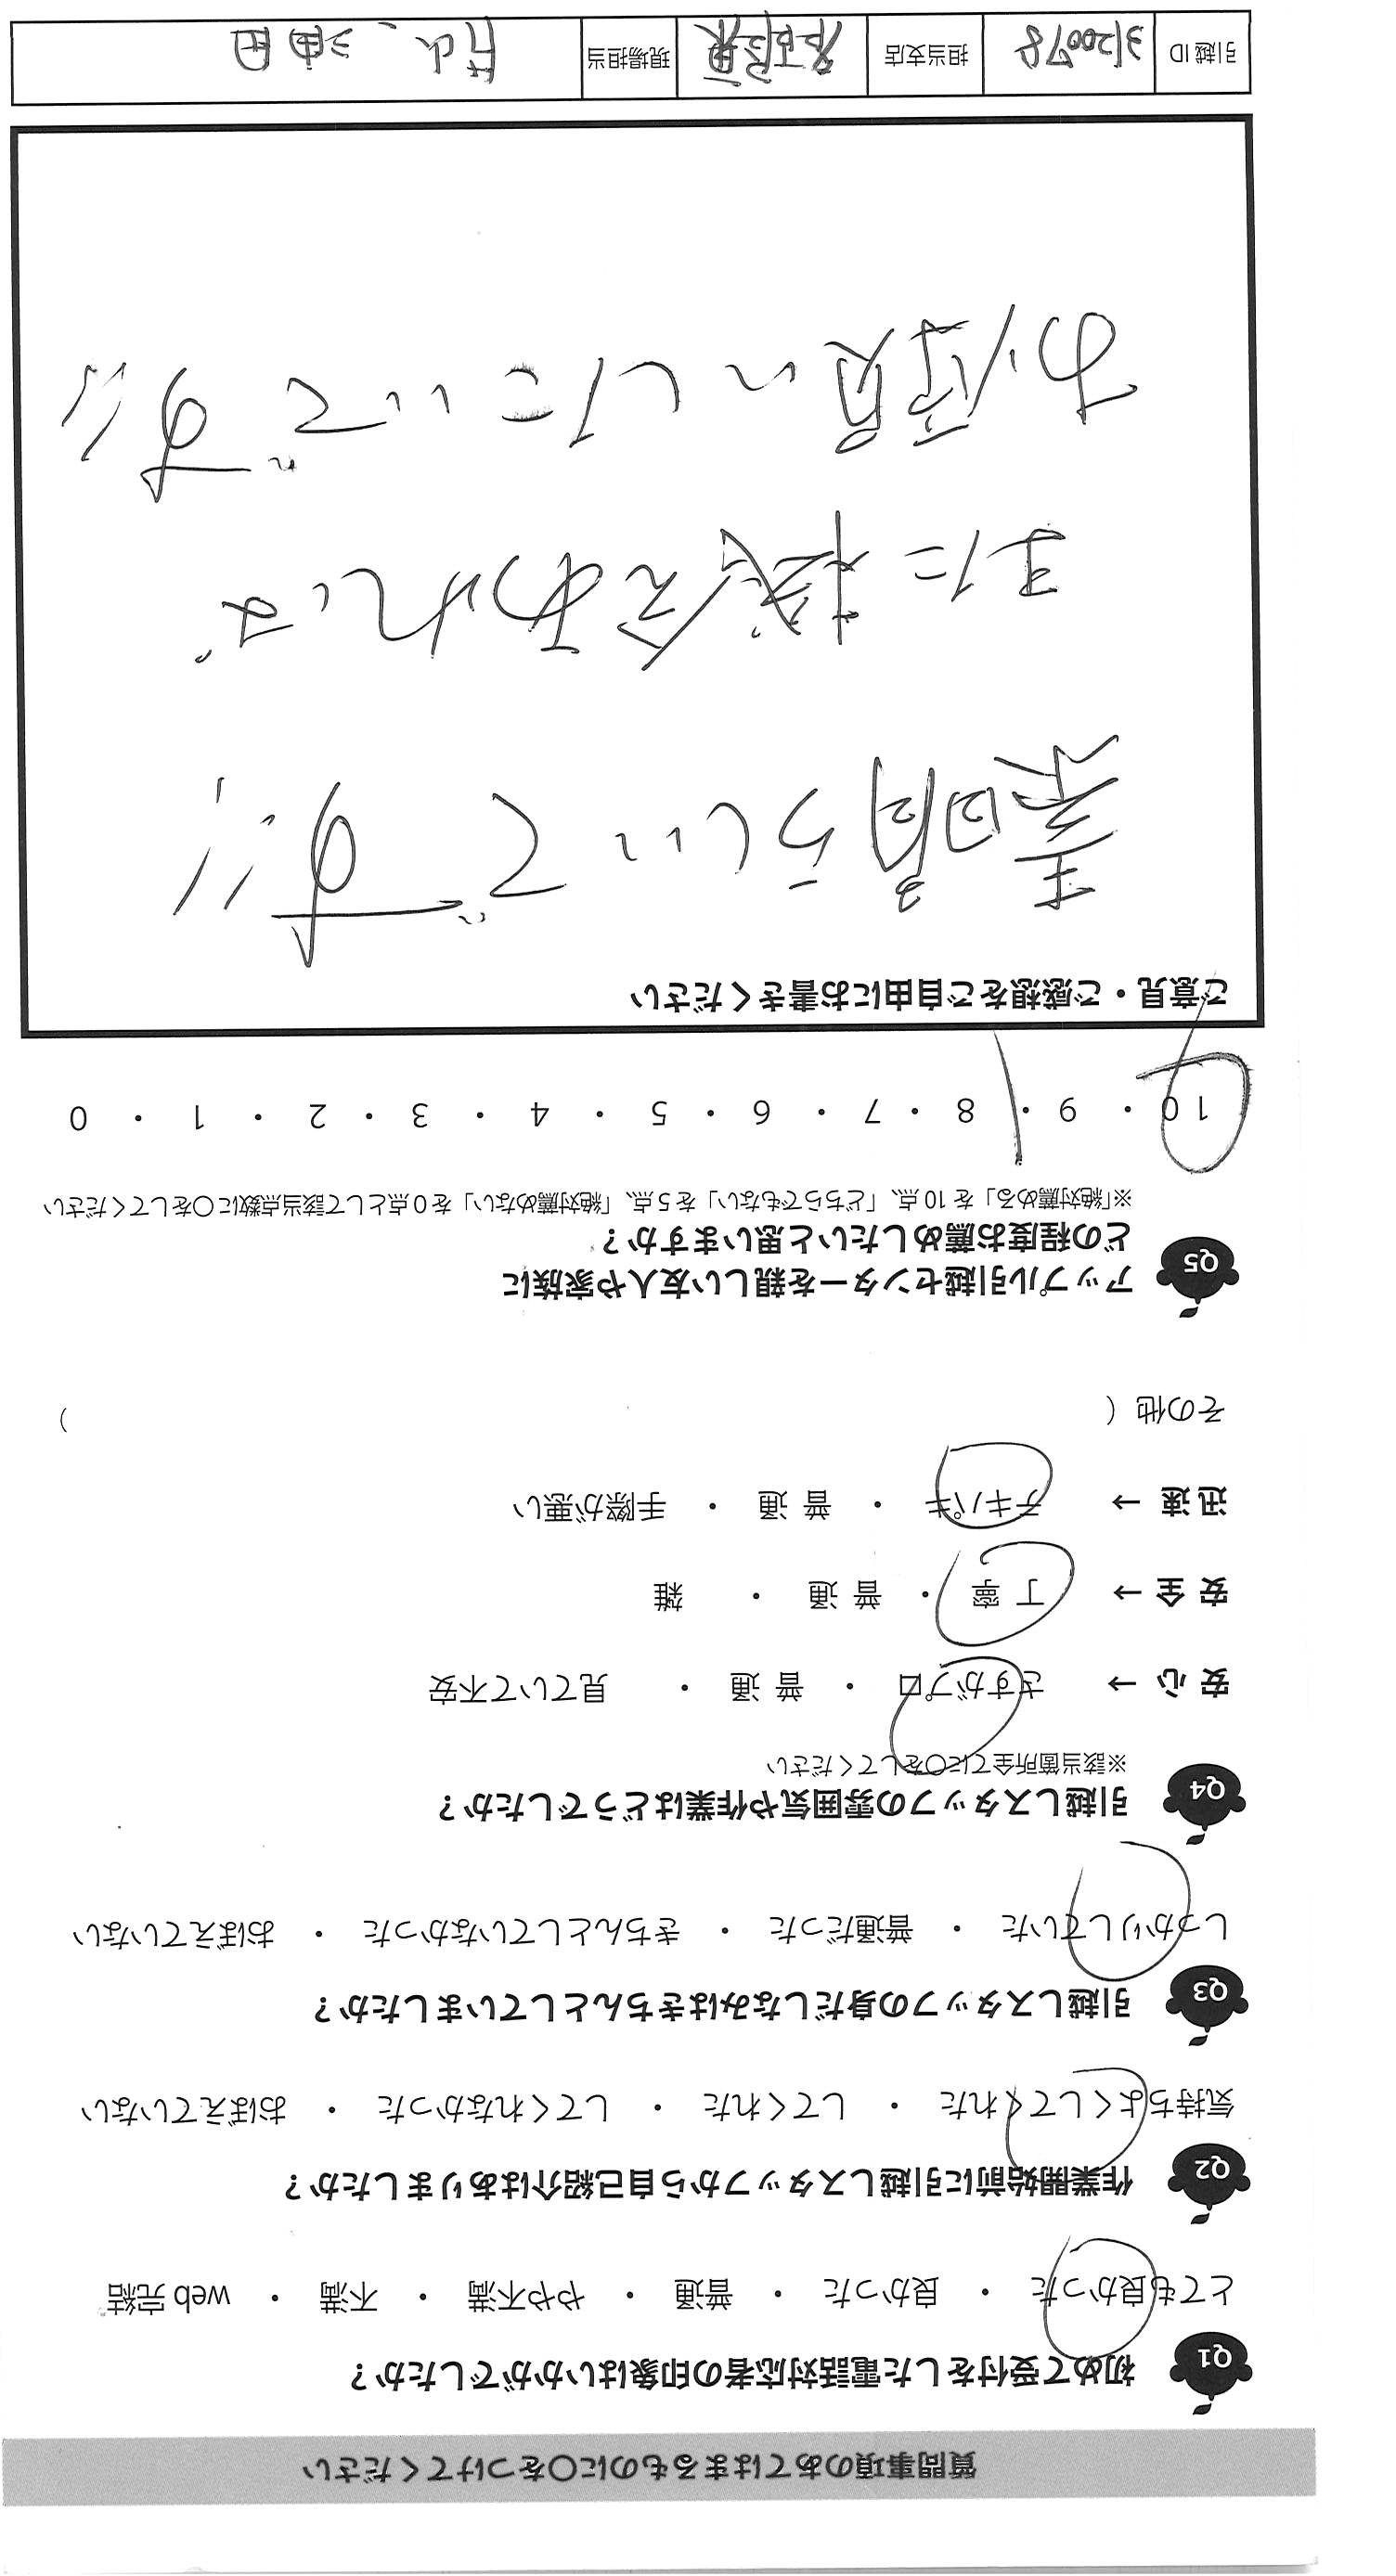 質問事項のあてはまるものに〇をつけてください
Q1 初めて受付をした電話対応者の印象はいかがでしたか？
とても良かった ・ 良かった ・ 普通 ・ やや不満 ・ 不満 ・ web 完結
Q2 作業開始前に引越しスタッフから自己紹介はありましたか？
気持ちよくしてくれた ・ してくれた ・ してくれなかった ・ おぼえていない
Q3 引越しスタッフの身だしなみはきちんとしていましたか？
しっかりしていた ・ 普通だった ・ きちんとしていなかった ・ おぼえていない
Q4 引越しスタッフの雰囲気や作業はどうでしたか？
※該当箇所全てに〇をしてください
安 心 → さすがプロ ・ 普 通 ・ 見ていて不安
安 全 → 丁 寧 ・ 普 通 ・ 雑
迅 速 → テキパキ ・ 普 通 ・ 手際が悪い
その他（ ）
Q5 アップル引越センターを親しい友人や家族に
どの程度お薦めしたいと思いますか？
※「絶対薦める」を 10 点、「どちらでもない」を 5 点、「絶対薦めない」を 0 点として該当点数に〇をしてください
10 ・ 9 ・ 8 ・ 7 ・ 6 ・ 5 ・ 4 ・ 3 ・ 2 ・ 1 ・ 0
ご意見・ご感想をご自由にお書きください
素晴らしいです!!
また機会あれば
お願いしたいです!!
引越 ID 3120078 担当支店 名古屋 現場担当